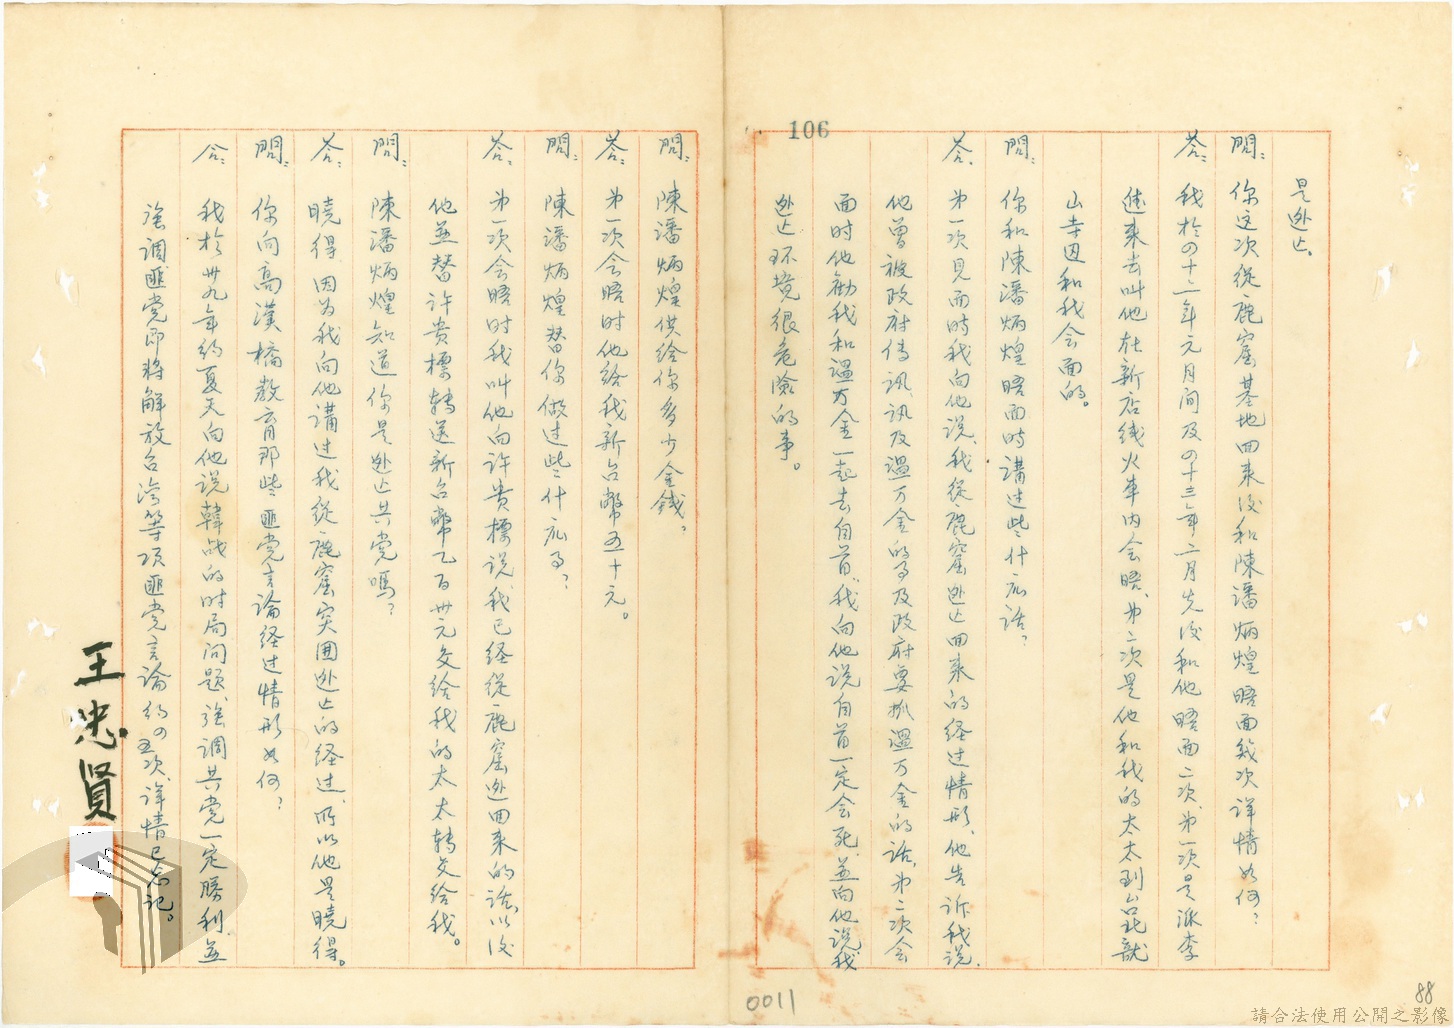 106
是逃亡。
問：你这次從鹿窟基地回来後和陳潘炳煌晤面幾次詳情如何？
答：我於四十二年元月間及四十三年二月先後和他晤面二次、第一次是派李
進来去叫他在新店线火車内会晤、第二次是他和我的太太到台北龍
山寺边和我会面的。
問：你和陳潘炳煌晤面時講过些什広話？
答：第一次見面時我向他说、我從鹿窟逃亡回来的経过情形、他告訴我说、
他曽被政府传訊、訊及温万金的事及政府要抓温万金的話、第二次会
面时他勧我和温万金一起去自首、我向他说自首一定会死、並向他说我
逃亡环境很危險的事。
問：陳潘炳煌供给你多少金錢？
答：第一次会晤时他给我新台幣五十元。
問：陳潘炳煌替你做过些什広事？
答：第一次会晤时我叫他向许贵標说、我已経從鹿窟逃回来的話、以後
他並替许贵標转送新台幣乙百卅元交给我的太太转交给我。
問：陳潘炳煌知道你是逃亡共党嗎？
答：曉得、因为我向他講过我從鹿窟突围逃亡的経过、所以他是曉得。
問：你向高漢橋教育那些匪党言論経过情形如何？
答：我於卅九年約夏天向他说韓战的时局问题、強調共党一定勝利、並
強調匪党即將解放台湾等项匪党言論約四五次、详情已忘记。
王忠賢
0011
88
請合法使用公開之影像